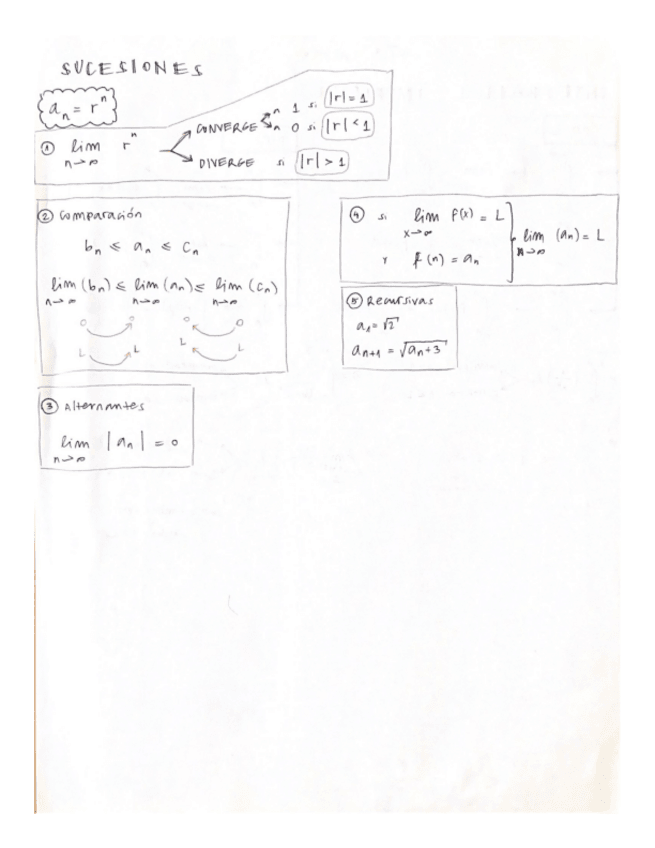 SUCESIONES
aₙ = rⁿ
① lim n→∞ rⁿ
CONVERGE a 1 si |r| = 1
a 0 si |r| < 1
DIVERGE si |r| > 1
② Comparación
bₙ ≤ aₙ ≤ cₙ
lim n→∞ (bₙ) ≤ lim n→∞ (aₙ) ≤ lim n→∞ (cₙ)
0 0 0 0
L L L L
③ Alternantes
lim n→∞ |aₙ| = 0
④ si lim x→∞ f(x) = L
y f(n) = aₙ
lim n→∞ (aₙ) = L
⑤ Recursivas
a₁ = √2
aₙ₊₁ = √(aₙ+3)